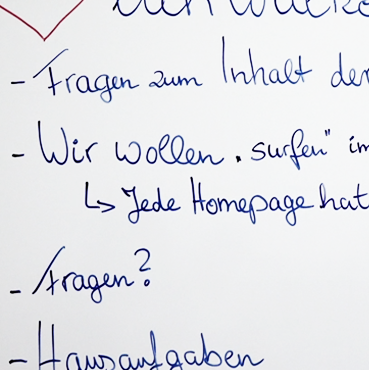 - Fragen zum Inhalt der
- Wir wollen "surfen" im
↳ Jede Homepage hat
- Fragen?
- Hausaufgaben